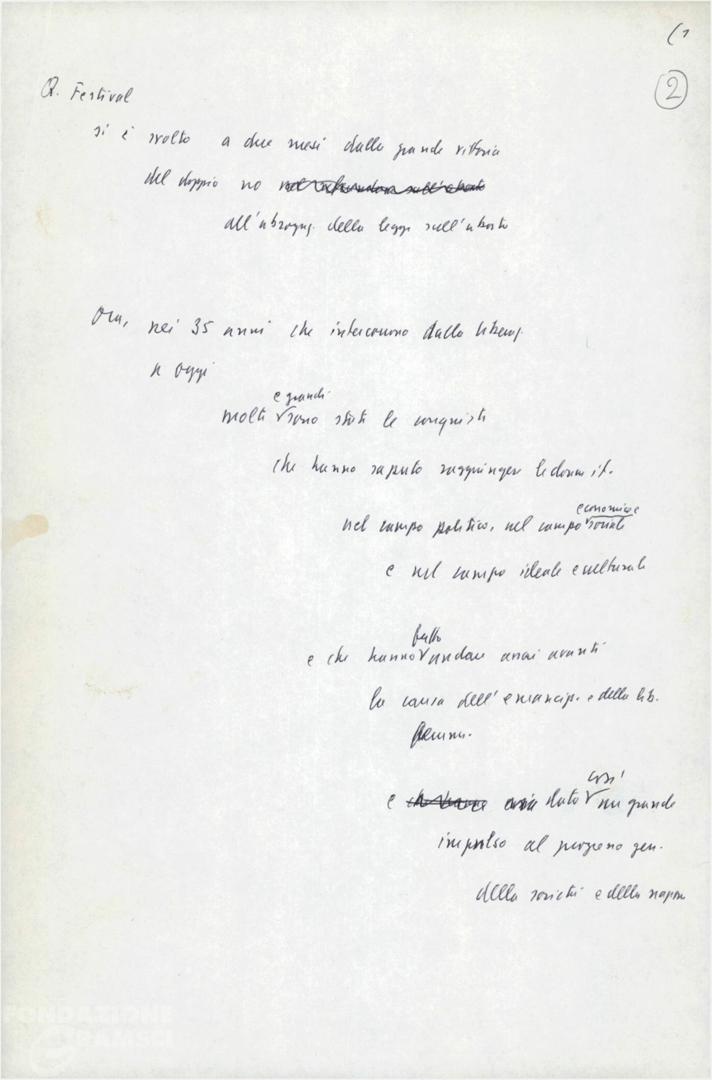 (1
2
Q. Festival
si è svolto a due mesi dalla grande vittoria
del doppio no
all'abrogaz. della legge sull'aborto
Ora, nei 35 anni che intercorrono dalla liberaz.
a oggi
e grandi
molte sono state le conquiste
che hanno saputo raggiungere le donne it.
economico e
nel campo politico, nel campo sociale
e nel campo ideale e culturale
fatto
e che hanno andare assai avanti
la causa dell'emancip. e della lib.
femm.
così
e dato un grande
impulso al progresso gen.
della società e della nazione
FONDAZIONE
GRAMSCI